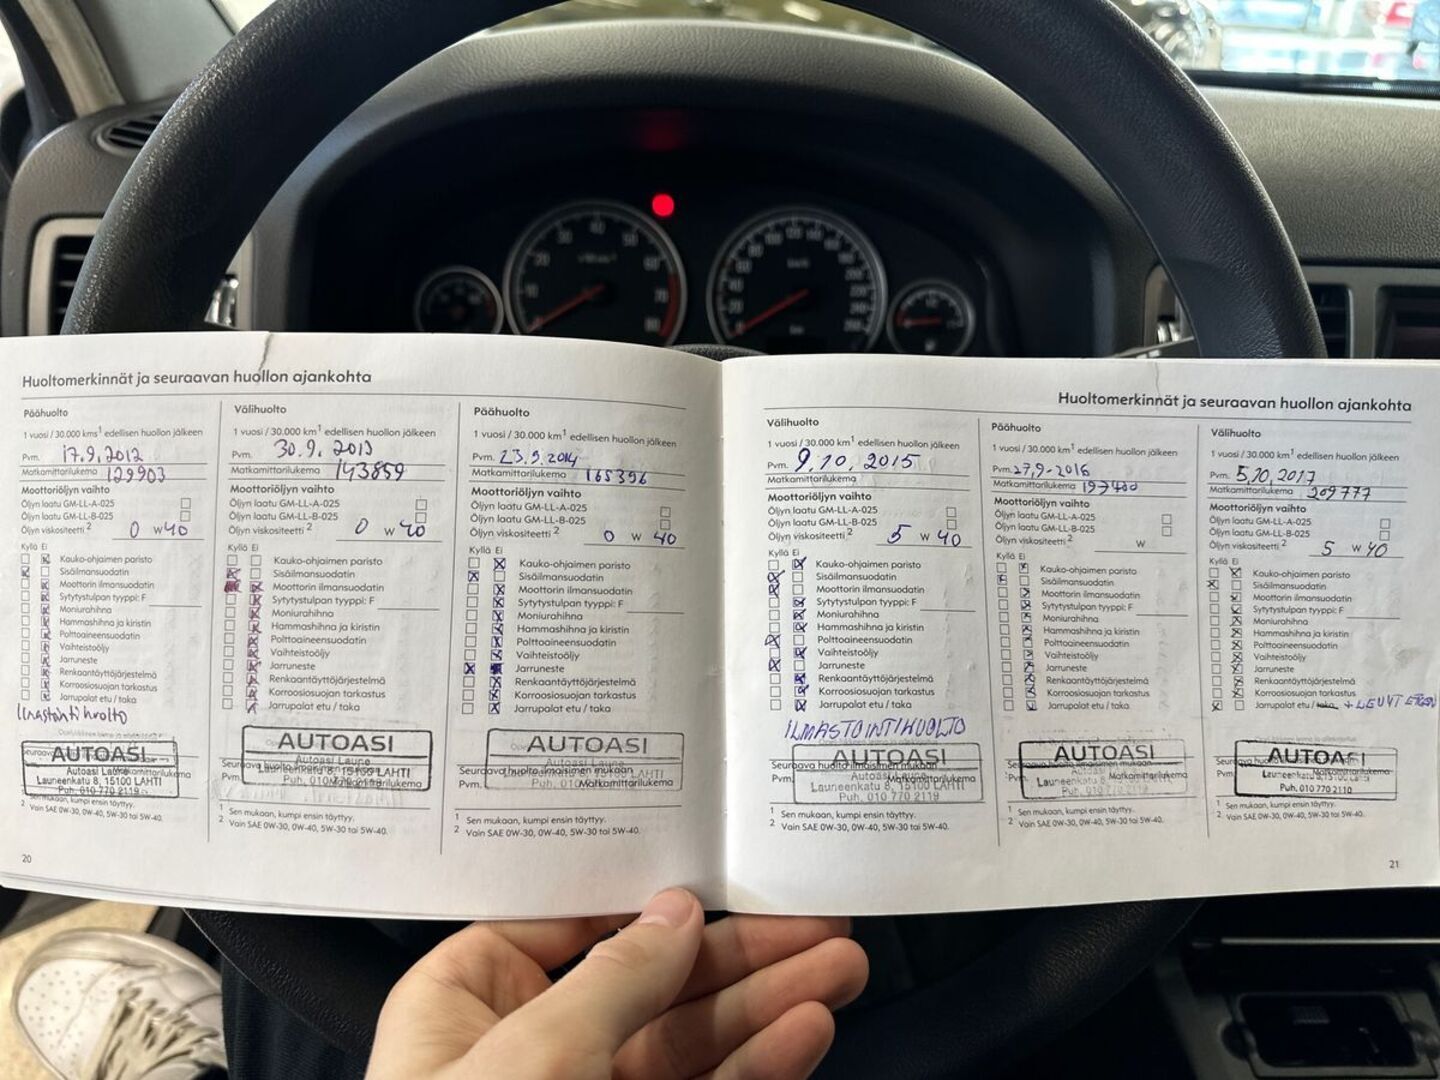 Huoltomerkinnät ja seuraavan huollon ajankohta
Päähuolto
1 vuosi / 30.000 kms¹ edellisen huollon jälkeen
Pvm. 17.9.2012
Matkamittarilukema 129903
Moottoriöljyn vaihto
Öljyn laatu GM-LL-A-025
Öljyn laatu GM-LL-B-025
Öljyn viskositeetti ² 0 W 40
Kyllä Ei
Kauko-ohjaimen paristo
Sisäilmansuodatin
Moottorin ilmansuodatin
Sytytystulpan tyyppi: F
Moniurahihna
Hammashihna ja kiristin
Polttoaineensuodatin
Vaihteistoöljy
Jarruneste
Renkaantäyttöjärjestelmä
Korroosiosuojan tarkastus
Jarrupalat etu / taka
Ilmastointihuolto
AUTOASI
Autoasi Laune
Launeenkatu 8, 15100 LAHTI
Puh. 010 770 2119
Sen mukaan, kumpi ensin täyttyy.
² Vain SAE 0W-30, 0W-40, 5W-30 tai 5W-40.
20
Välihuolto
1 vuosi / 30.000 km¹ edellisen huollon jälkeen
Pvm. 30.9.2013
Matkamittarilukema 143859
Moottoriöljyn vaihto
Öljyn laatu GM-LL-A-025
Öljyn laatu GM-LL-B-025
Öljyn viskositeetti ² 0 W 40
Kyllä Ei
Kauko-ohjaimen paristo
Sisäilmansuodatin
Moottorin ilmansuodatin
Sytytystulpan tyyppi: F
Moniurahihna
Hammashihna ja kiristin
Polttoaineensuodatin
Vaihteistoöljy
Jarruneste
Renkaantäyttöjärjestelmä
Korroosiosuojan tarkastus
Jarrupalat etu / taka
AUTOASI
Autoasi Laune
Launeenkatu 8, 15100 LAHTI
Matkamittarilukema
¹ Sen mukaan, kumpi ensin täyttyy.
² Vain SAE 0W-30, 0W-40, 5W-30 tai 5W-40.
Päähuolto
1 vuosi / 30.000 km¹ edellisen huollon jälkeen
Pvm. 23.9.2014
Matkamittarilukema 165396
Moottoriöljyn vaihto
Öljyn laatu GM-LL-A-025
Öljyn laatu GM-LL-B-025
Öljyn viskositeetti ² 0 W 40
Kyllä Ei
Kauko-ohjaimen paristo
Sisäilmansuodatin
Moottorin ilmansuodatin
Sytytystulpan tyyppi: F
Moniurahihna
Hammashihna ja kiristin
Polttoaineensuodatin
Vaihteistoöljy
Jarruneste
Renkaantäyttöjärjestelmä
Korroosiosuojan tarkastus
Jarrupalat etu / taka
AUTOASI
Seuraava huolto ilmaisimen mukaan
Pvm. Matkamittarilukema
¹ Sen mukaan, kumpi ensin täyttyy.
² Vain SAE 0W-30, 0W-40, 5W-30 tai 5W-40.
Huoltomerkinnät ja seuraavan huollon ajankohta
Välihuolto
1 vuosi / 30.000 km¹ edellisen huollon jälkeen
Pvm. 9.10.2015
Matkamittarilukema
Moottoriöljyn vaihto
Öljyn laatu GM-LL-A-025
Öljyn laatu GM-LL-B-025
Öljyn viskositeetti ² 5 W 40
Kyllä Ei
Kauko-ohjaimen paristo
Sisäilmansuodatin
Moottorin ilmansuodatin
Sytytystulpan tyyppi: F
Moniurahihna
Hammashihna ja kiristin
Polttoaineensuodatin
Vaihteistoöljy
Jarruneste
Renkaantäyttöjärjestelmä
Korroosiosuojan tarkastus
Jarrupalat etu / taka
ILMASTOINTIHUOLTO
AUTOASI
Seuraava huolto ilmaisimen mukaan
Autoasi Laune
Pvm. Matkamittarilukema
Launeenkatu 8, 15100 LAHTI
Puh. 010 770 2119
¹ Sen mukaan, kumpi ensin täyttyy.
² Vain SAE 0W-30, 0W-40, 5W-30 tai 5W-40.
Päähuolto
1 vuosi / 30.000 km¹ edellisen huollon jälkeen
Pvm. 27.9-2016
Matkamittarilukema
Moottoriöljyn vaihto
Öljyn laatu GM-LL-A-025
Öljyn laatu GM-LL-B-025
Öljyn viskositeetti ² W
Kyllä Ei
Kauko-ohjaimen paristo
Sisäilmansuodatin
Moottorin ilmansuodatin
Sytytystulpan tyyppi: F
Moniurahihna
Hammashihna ja kiristin
Polttoaineensuodatin
Vaihteistoöljy
Jarruneste
Renkaantäyttöjärjestelmä
Korroosiosuojan tarkastus
Jarrupalat etu / taka
AUTOASI
Seuraava huolto ilmaisimen mukaan
Pvm. Matkamittarilukema
Launeenkatu 8, 15100 LAHTI
¹ Sen mukaan, kumpi ensin täyttyy.
² Vain SAE 0W-30, 0W-40, 5W-30 tai 5W-40.
Välihuolto
1 vuosi / 30.000 km¹ edellisen huollon jälkeen
Pvm. 5.10.2017
Matkamittarilukema 209777
Moottoriöljyn vaihto
Öljyn laatu GM-LL-A-025
Öljyn laatu GM-LL-B-025
Öljyn viskositeetti ² 5 W 40
Kyllä Ei
Kauko-ohjaimen paristo
Sisäilmansuodatin
Moottorin ilmansuodatin
Sytytystulpan tyyppi: F
Moniurahihna
Hammashihna ja kiristin
Polttoaineensuodatin
Vaihteistoöljy
Jarruneste
Renkaantäyttöjärjestelmä
Korroosiosuojan tarkastus
Jarrupalat etu / taka + LEVYT ETEEN
AUTOASI
Seuraava huolto ilmaisimen mukaan
Pvm. Matkamittarilukema
Puh. 010 770 2110
¹ Sen mukaan, kumpi ensin täyttyy.
² Vain SAE 0W-30, 0W-40, 5W-30 tai 5W-40.
21